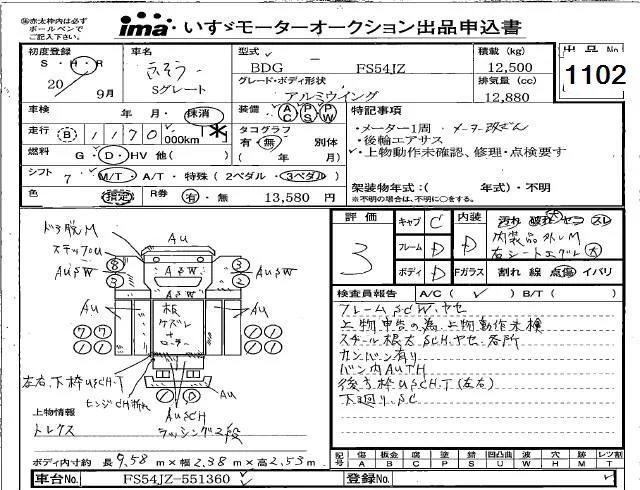 ㊟赤太枠内は必ず
ボールペンで
ご記入下さい。
ima いすゞモーターオークション出品申込書
初度登録 車名 型式 積載 (kg) 出品No.
S・H・R ふそう BDG FS54JZ 12,500 1102
20 9月 Sグレート グレード・ボディ形状 排気量 (cc)
アルミウイング 12,880
車検 年・月・抹消 装備 AC PS PW 特記事項
走行 B 1170 000km * タコグラフ ・メーター1周
有・無 別体 ・後輪エアサス
燃料 G・D・HV 他( ) ( 年 月) ・上物動作未確認、修理・点検要す
シフト 7 M/T・A/T・特殊 (2ペダル・3ペダル)
架装物年式:( 年式)・不明
色 指定 R券 有・無 13,580 円 ※不明の場合は、不明に○をする。
評価 3
キャブ C 内装 D 汚れ 破れ ヤニ スレ
フレーム D 内装品外しM
ボディ D Fガラス 割れ 線 点傷 イバリ
検査員報告 A/C( ✓ ) B/T( )
フレームSCW.ヤセ
上物申告の為、上物動作未検
カンバン有り
バン内AUTH
後ろ枠USCH.T(左右)
下廻り.SC
ステップU
AU
AUSW ASW AUSW
AU 板 AU
ASW
左右.下枠USCH.T
AU
AUSCH
ラッシング2段
上物情報
トレクス
ボディ内寸約 長9.58m×幅2.38m×高2.53m
記号 傷 A 板金 B 腐 C 塗 P 錆 S 凹凸曲 U 波 W 穴 H 跡 M 痛 T レツ割
車台No. FS54JZ-551360 登録No.